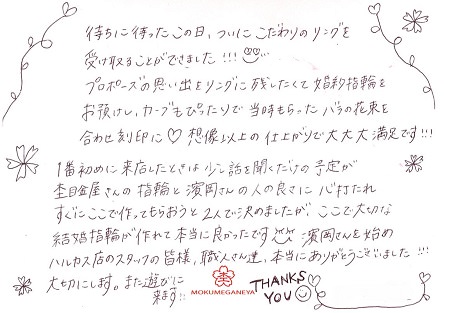 待ちに待ったこの日、ついにこだわりのリングを
受け取ることができました!!!
プロポーズの思い出をリングに残したくて婚約指輪を
お預けし、カーブもぴったりで当時もらったバラの花束を
合わせ刻印に♡想像以上の仕上がりで大大大満足です!!!
1番初めに来店したときは少し話を聞くだけの予定が
杢目金屋さんの指輪と濱岡さんの人の良さに心打たれ
すぐにここで作ってもらおうと2人で決めましたが ここで大切な
結婚指輪が作れて本当に良かったです 濱岡さんを始め
ハルカス店のスタッフの皆様、職人さん達、本当にありがとうございました!!!
大切にします。また遊びに
来ます!!
MOKUMEGANEYA
THANKS
YOU